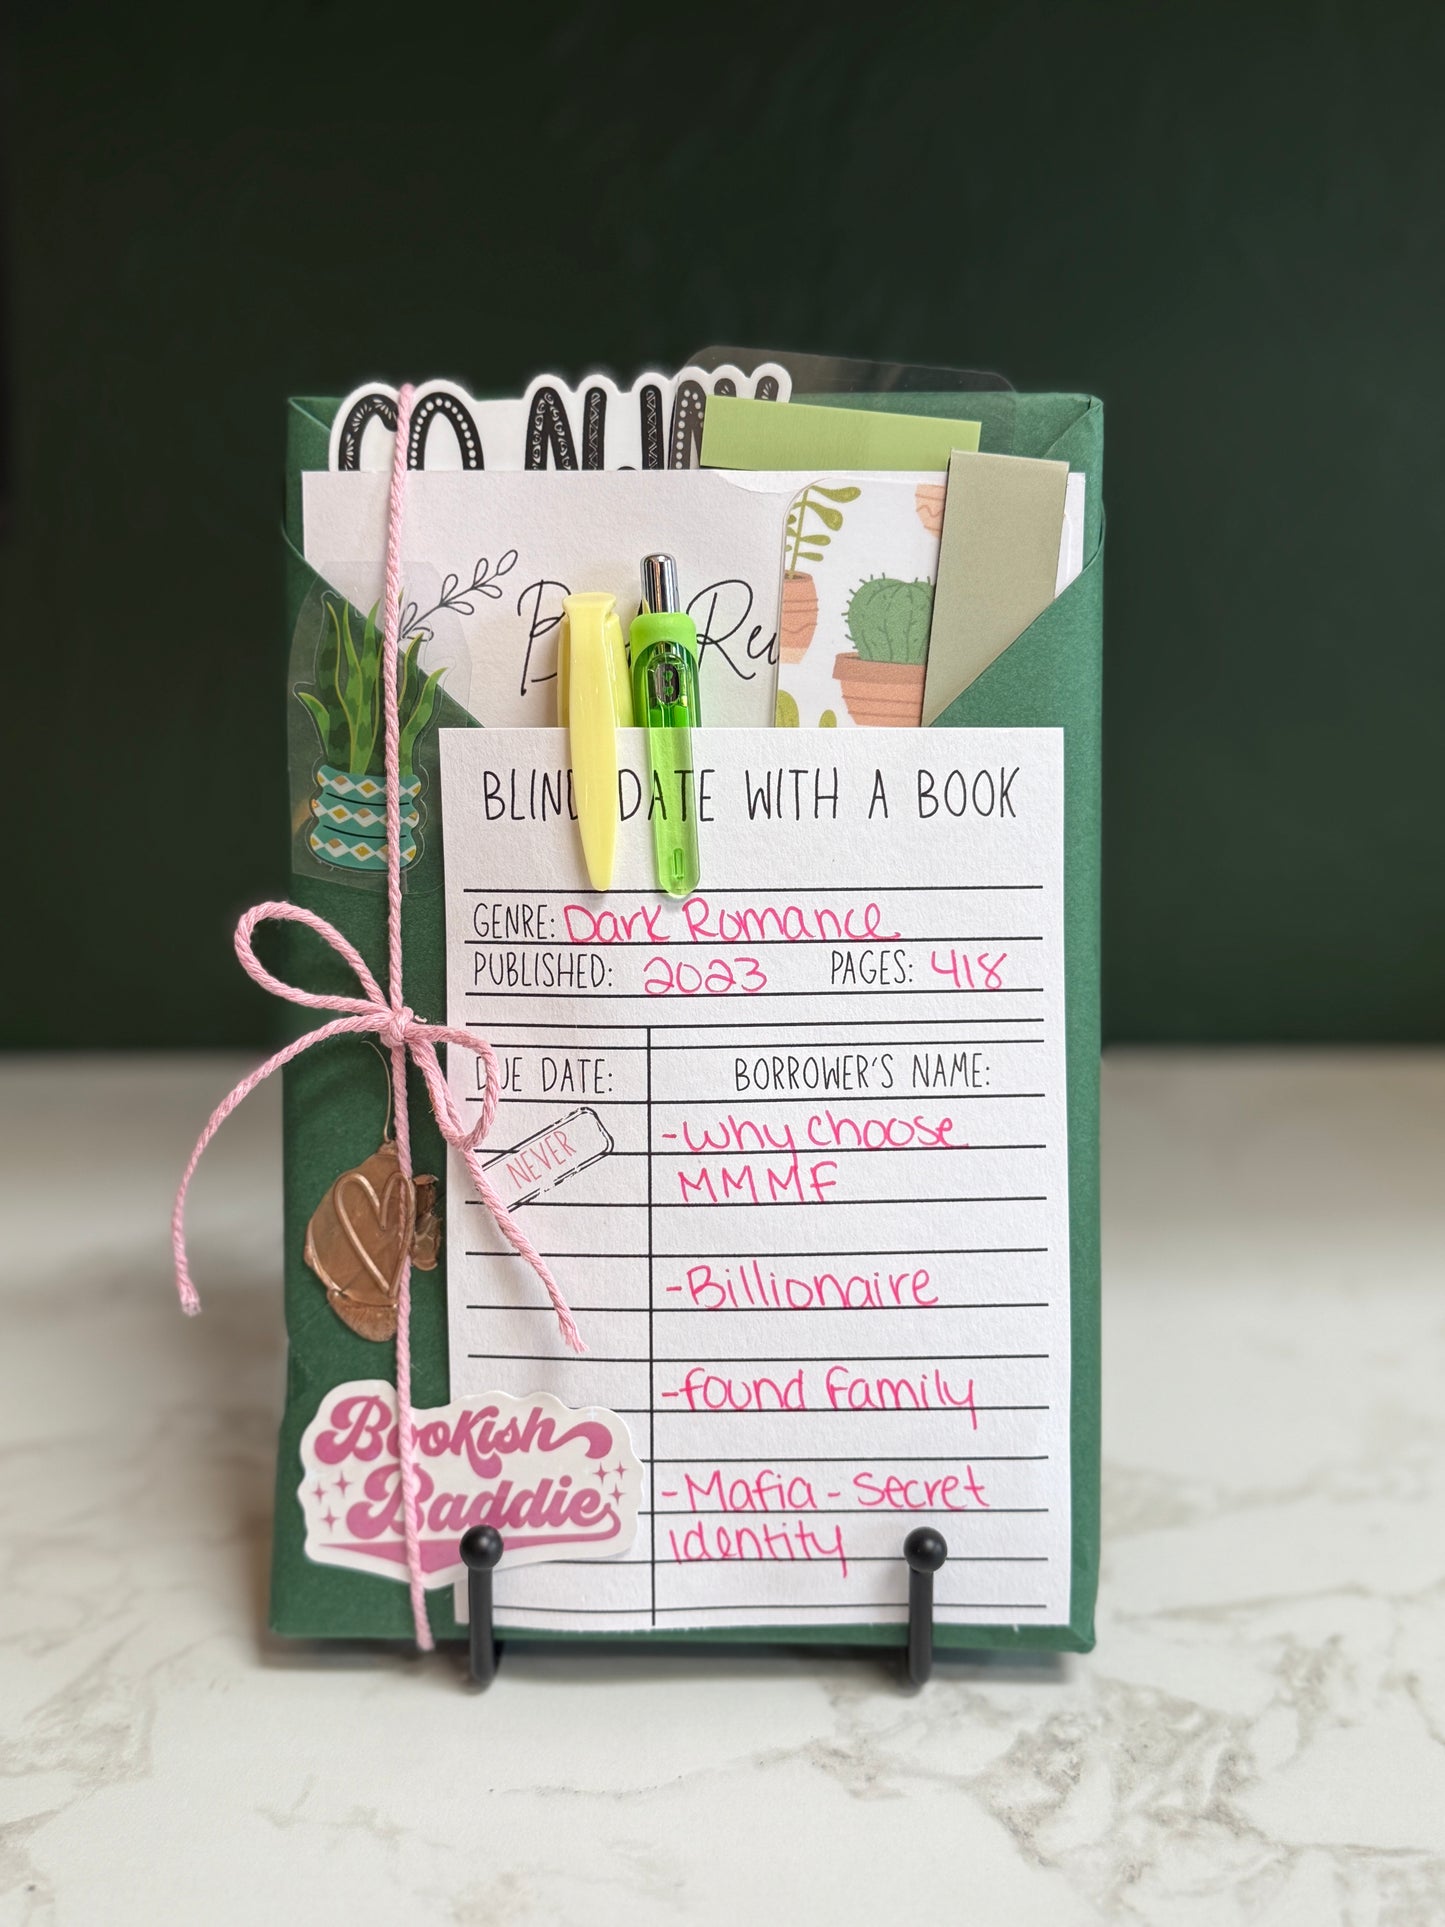 BLIND DATE WITH A BOOK
GENRE: Dark Romance
PUBLISHED: 2023 PAGES: 418
DUE DATE: BORROWER'S NAME:
NEVER
-Why choose
MMMF
-Billionaire
-found family
-Mafia - Secret
identity
Bookish
Baddie